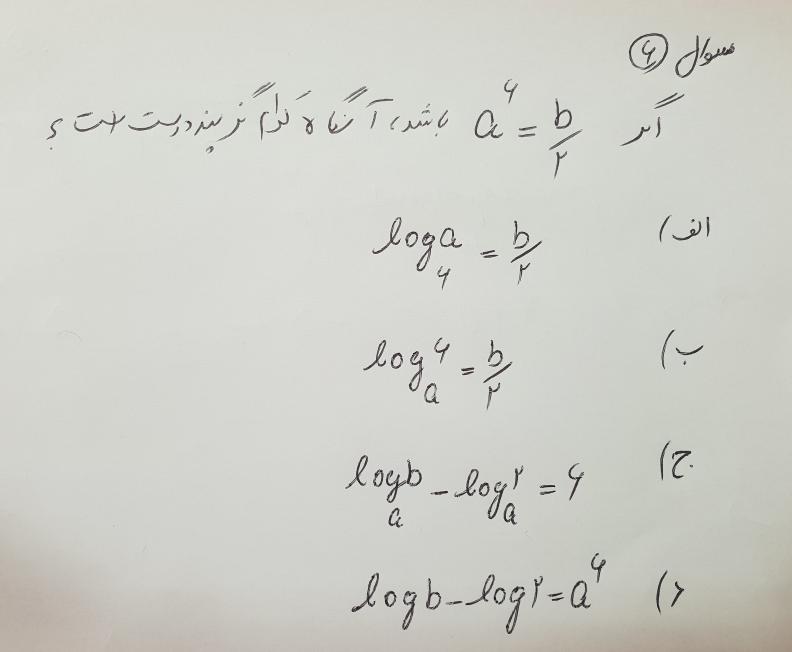 سوال ۶
اگر a^۶ = b/۲ باشد، آنگاه کدام گزینه درست است؟
الف) log_۶ a = b/۲
ب) log_a ۶ = b/۲
ج) log_a b - log_a ۲ = ۶
د) log b - log ۲ = a^۶